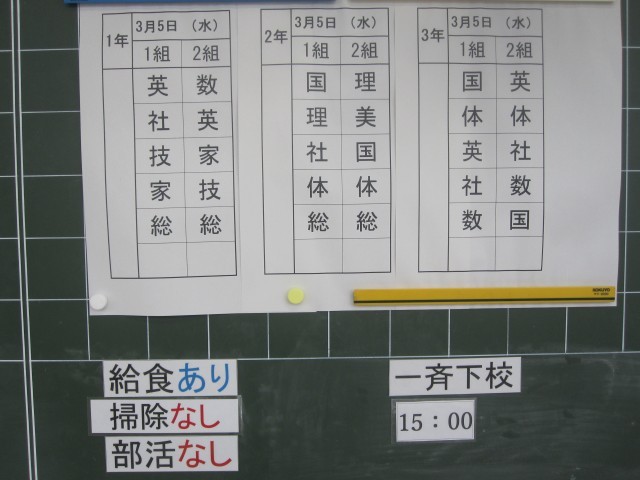 1年 3月5日 （水）
1組 2組
英 数
社 英
技 家
家 技
総 総
2年 3月5日 （水）
1組 2組
国 理
理 美
社 国
体 体
総 総
3年 3月5日 （水）
1組 2組
国 英
体 体
英 社
社 数
数 国
KOKUYO
給食あり
掃除なし
部活なし
一斉下校
15：00